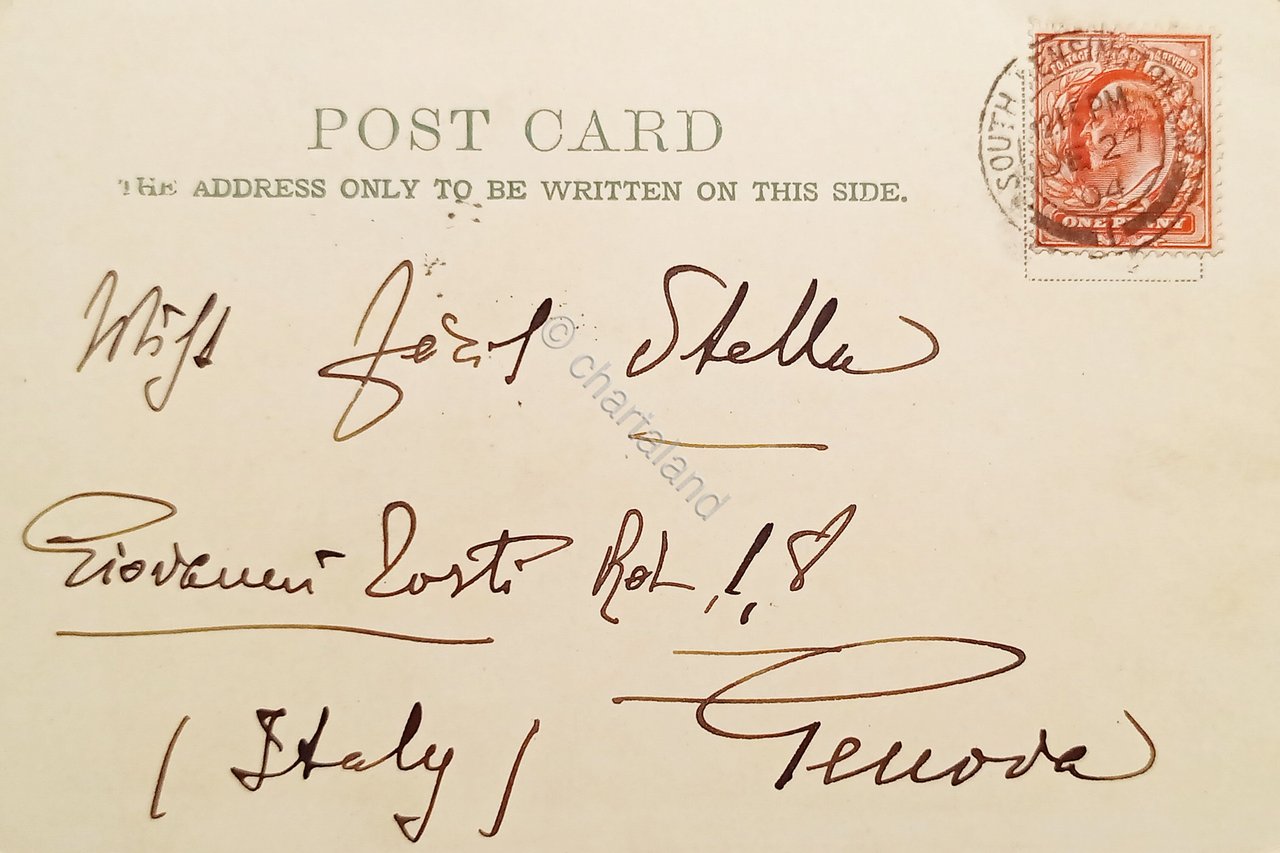 POST CARD
THE ADDRESS ONLY TO BE WRITTEN ON THIS SIDE.
POSTAGE & REVENUE
ONE PENNY
SOUTH KENSINGTON
PM
27
04
Stella
© chartaland
Giovanni
8
Genova
(Italy)